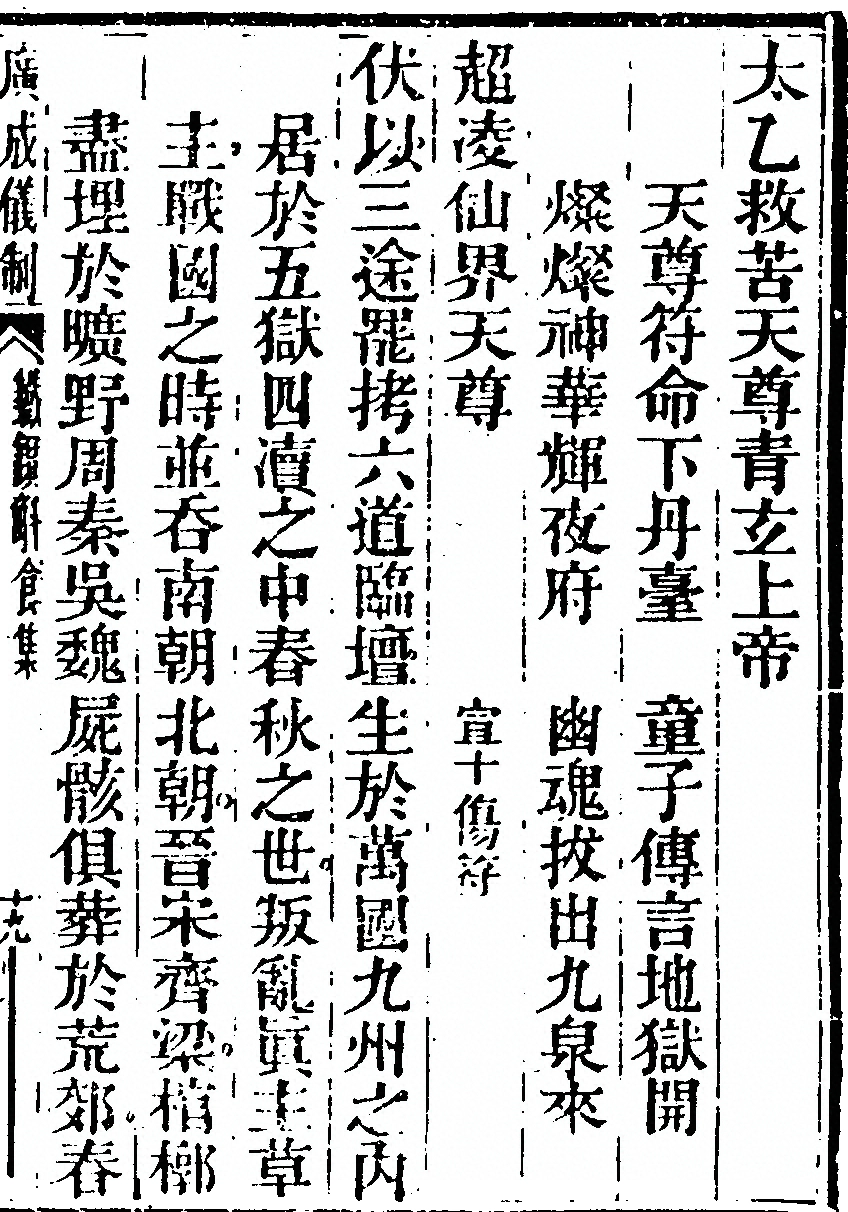 太乙救苦天尊青玄上帝
天尊符命下丹臺　童子傳言地獄開
燦燦神華輝夜府　幽魂拔出九泉來
超凌仙界天尊　宣十傷符
伏以三途罷拷六道臨壇生於萬國九州之內
居於五獄四瀆之中春秋之世叛亂眞主草
主戰國之時並吞南朝北朝晉宋齊梁棺槨
盡埋於曠野周秦吳魏屍骸俱葬於荒郊春
廣成儀制　鐵鑵斛食集　十九